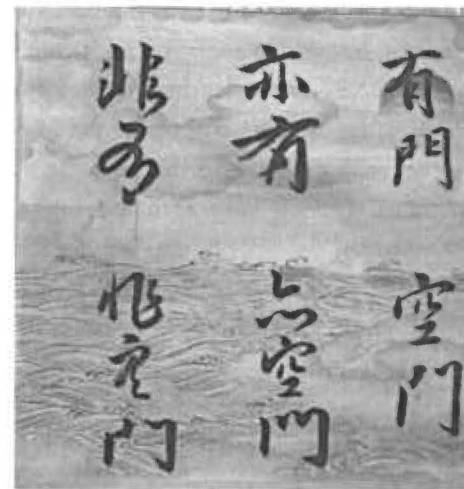 有門 空門
亦有 亦空門
非有 非空門